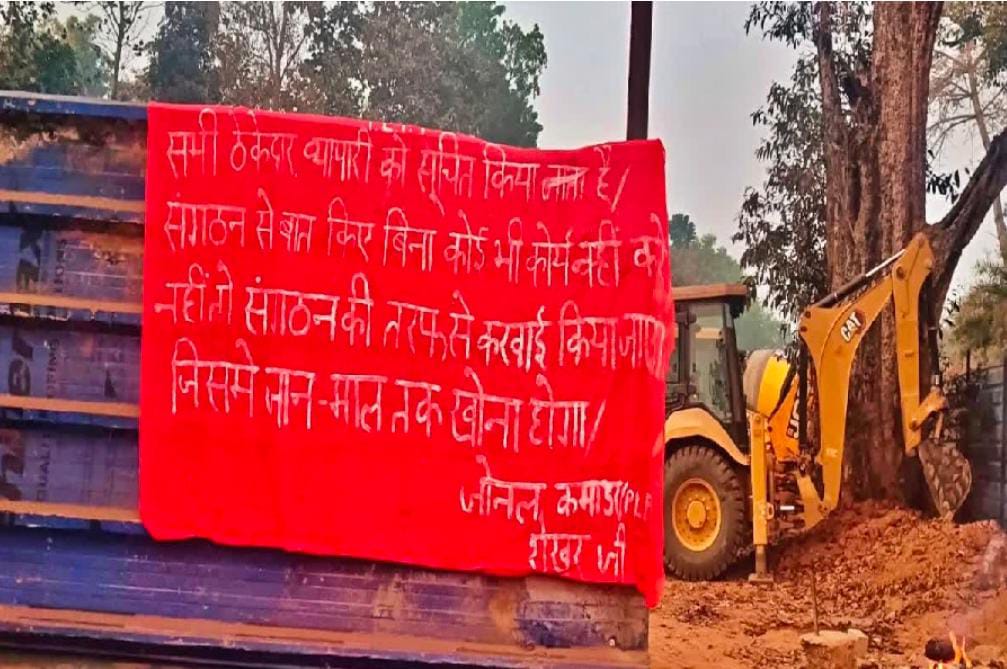 सभी ठेकेदार व्यापारी को सूचित किया जाता है/
संगाठन से बात किए बिना कोई भी कार्य नहीं करे
नहीं तो संगाठन की तरफ से करवाई किया जाएगा
जिसमे जान-माल तक खोना होगा/
जोनल कमांडर PLF
शेखर जी
CAT